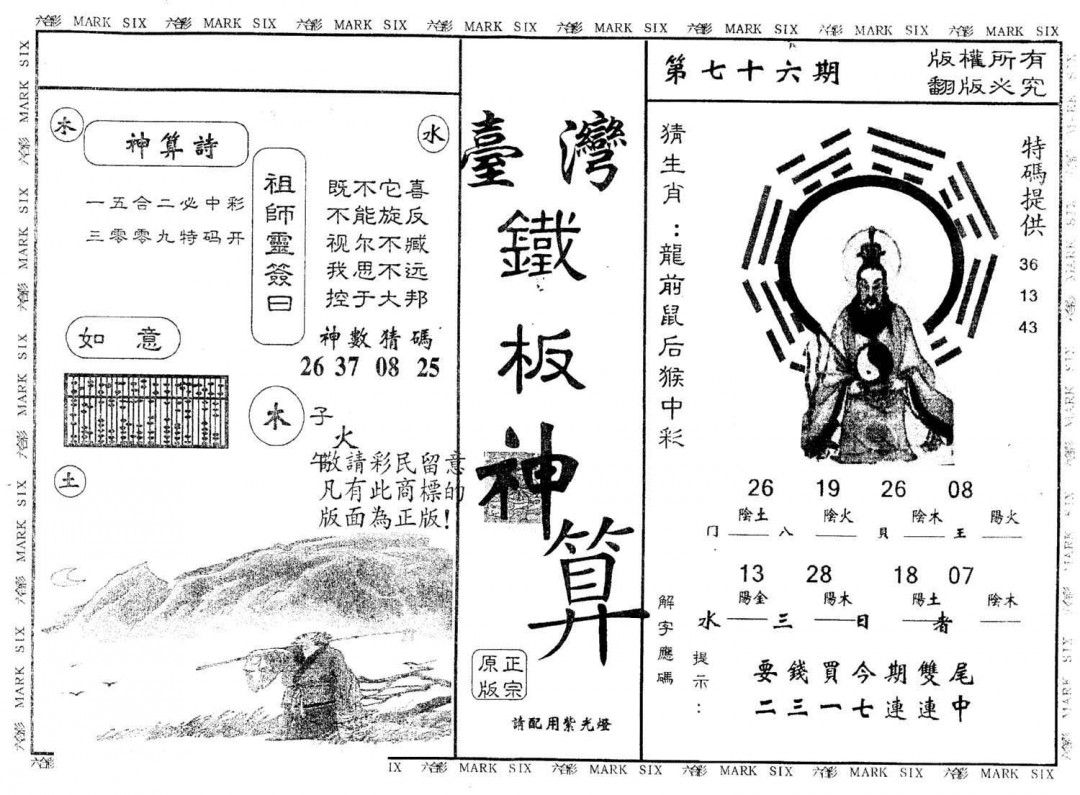 六合彩 MARK SIX 六合彩 MARK SIX 六合彩 MARK SIX 六合彩 MARK SIX 六合彩 MARK SIX 六合彩 MARK SIX 六合彩 MARK SIX 六合彩 MARK SIX
第七十六期
版權所有
翻版必究
木
神算詩
水
一五合二必中彩
三零零九特码开
祖師靈簽曰
既不它喜
不能旋反
视尔不臧
我思不远
控于大邦
神數猜碼
26 37 08 25
如意
木
子
火
午
敬請彩民留意
凡有此商標的
版面為正版!
土
臺灣
鐵
板
神
算
正宗
原版
請配用紫光燈
猜生肖:龍前鼠后猴中彩
特碼提供
36
13
43
26 19 26 08
陰土 陰火 陰木 陽火
门 八 貝 王
13 28 18 07
陽金 陽木 陽土 陰木
水 三 日 者
解字應碼
提示:
要錢買今期雙尾
二三一七連連中
六合彩
IX 六合彩 MARK SIX 六合彩 MARK SIX 六合彩 MARK SIX 六合彩 MARK SIX 六合彩 MARK SIX